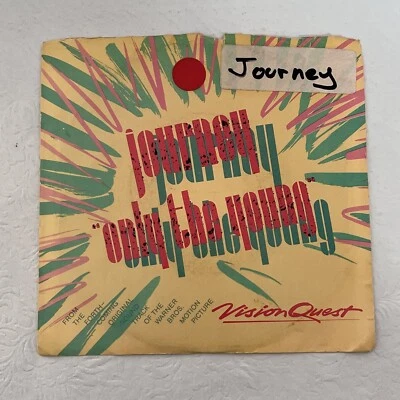 Journey
journey
"only the young"
FROM THE FORTH-COMING ORIGINAL SOUND TRACK OF THE WARNER BROS. MOTION PICTURE
Vision Quest